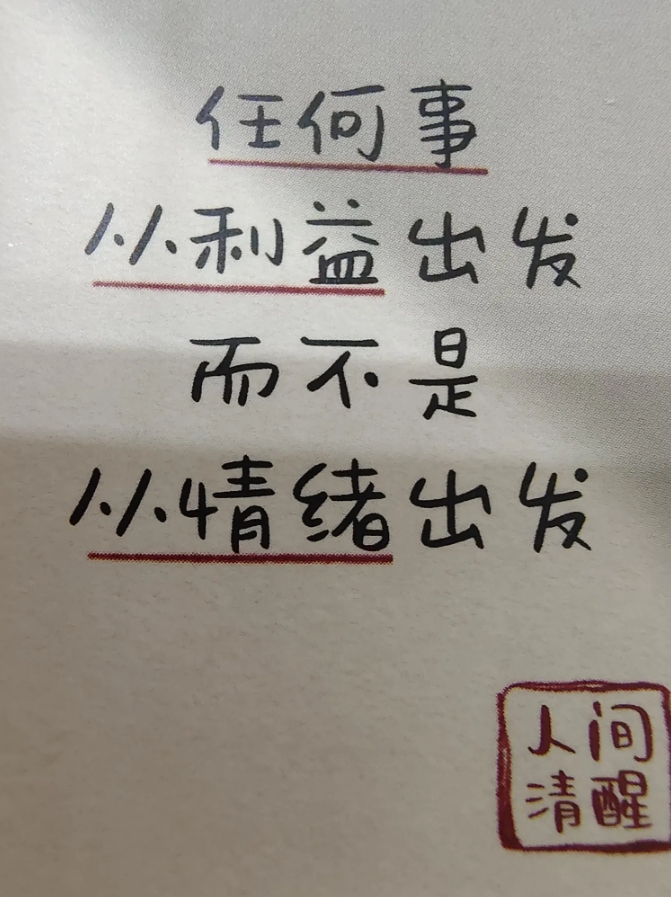 任何事
从利益出发
而不是
从情绪出发
人间
清醒